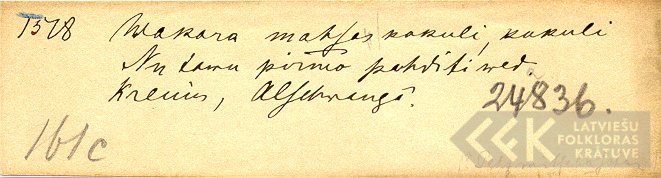 1578 Wakara mahtes kokuli, kokuli
Nu tawu pirmo pahditi wed.
Krewins, Alschwangâ.
24836.
161c
LATVIEŠU
FOLKLORAS
KRĀTUVE